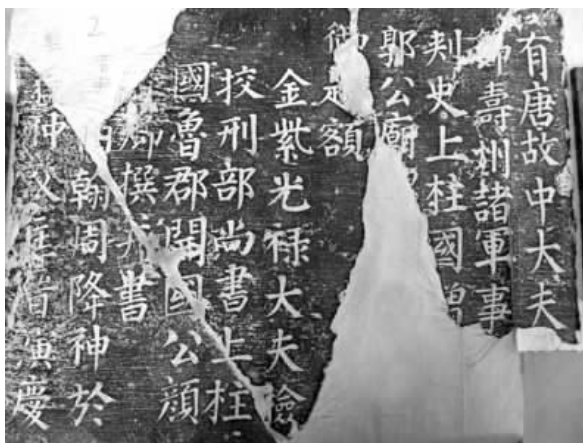 有唐故中大夫
節壽州諸軍事
刾史上柱國贈
郭公廟
御題額
金紫光祿大夫檢
挍刑部尚書上柱
國魯郡開國公顏
卿撰并書
翰周降神於
仲父匡晉演慶
2